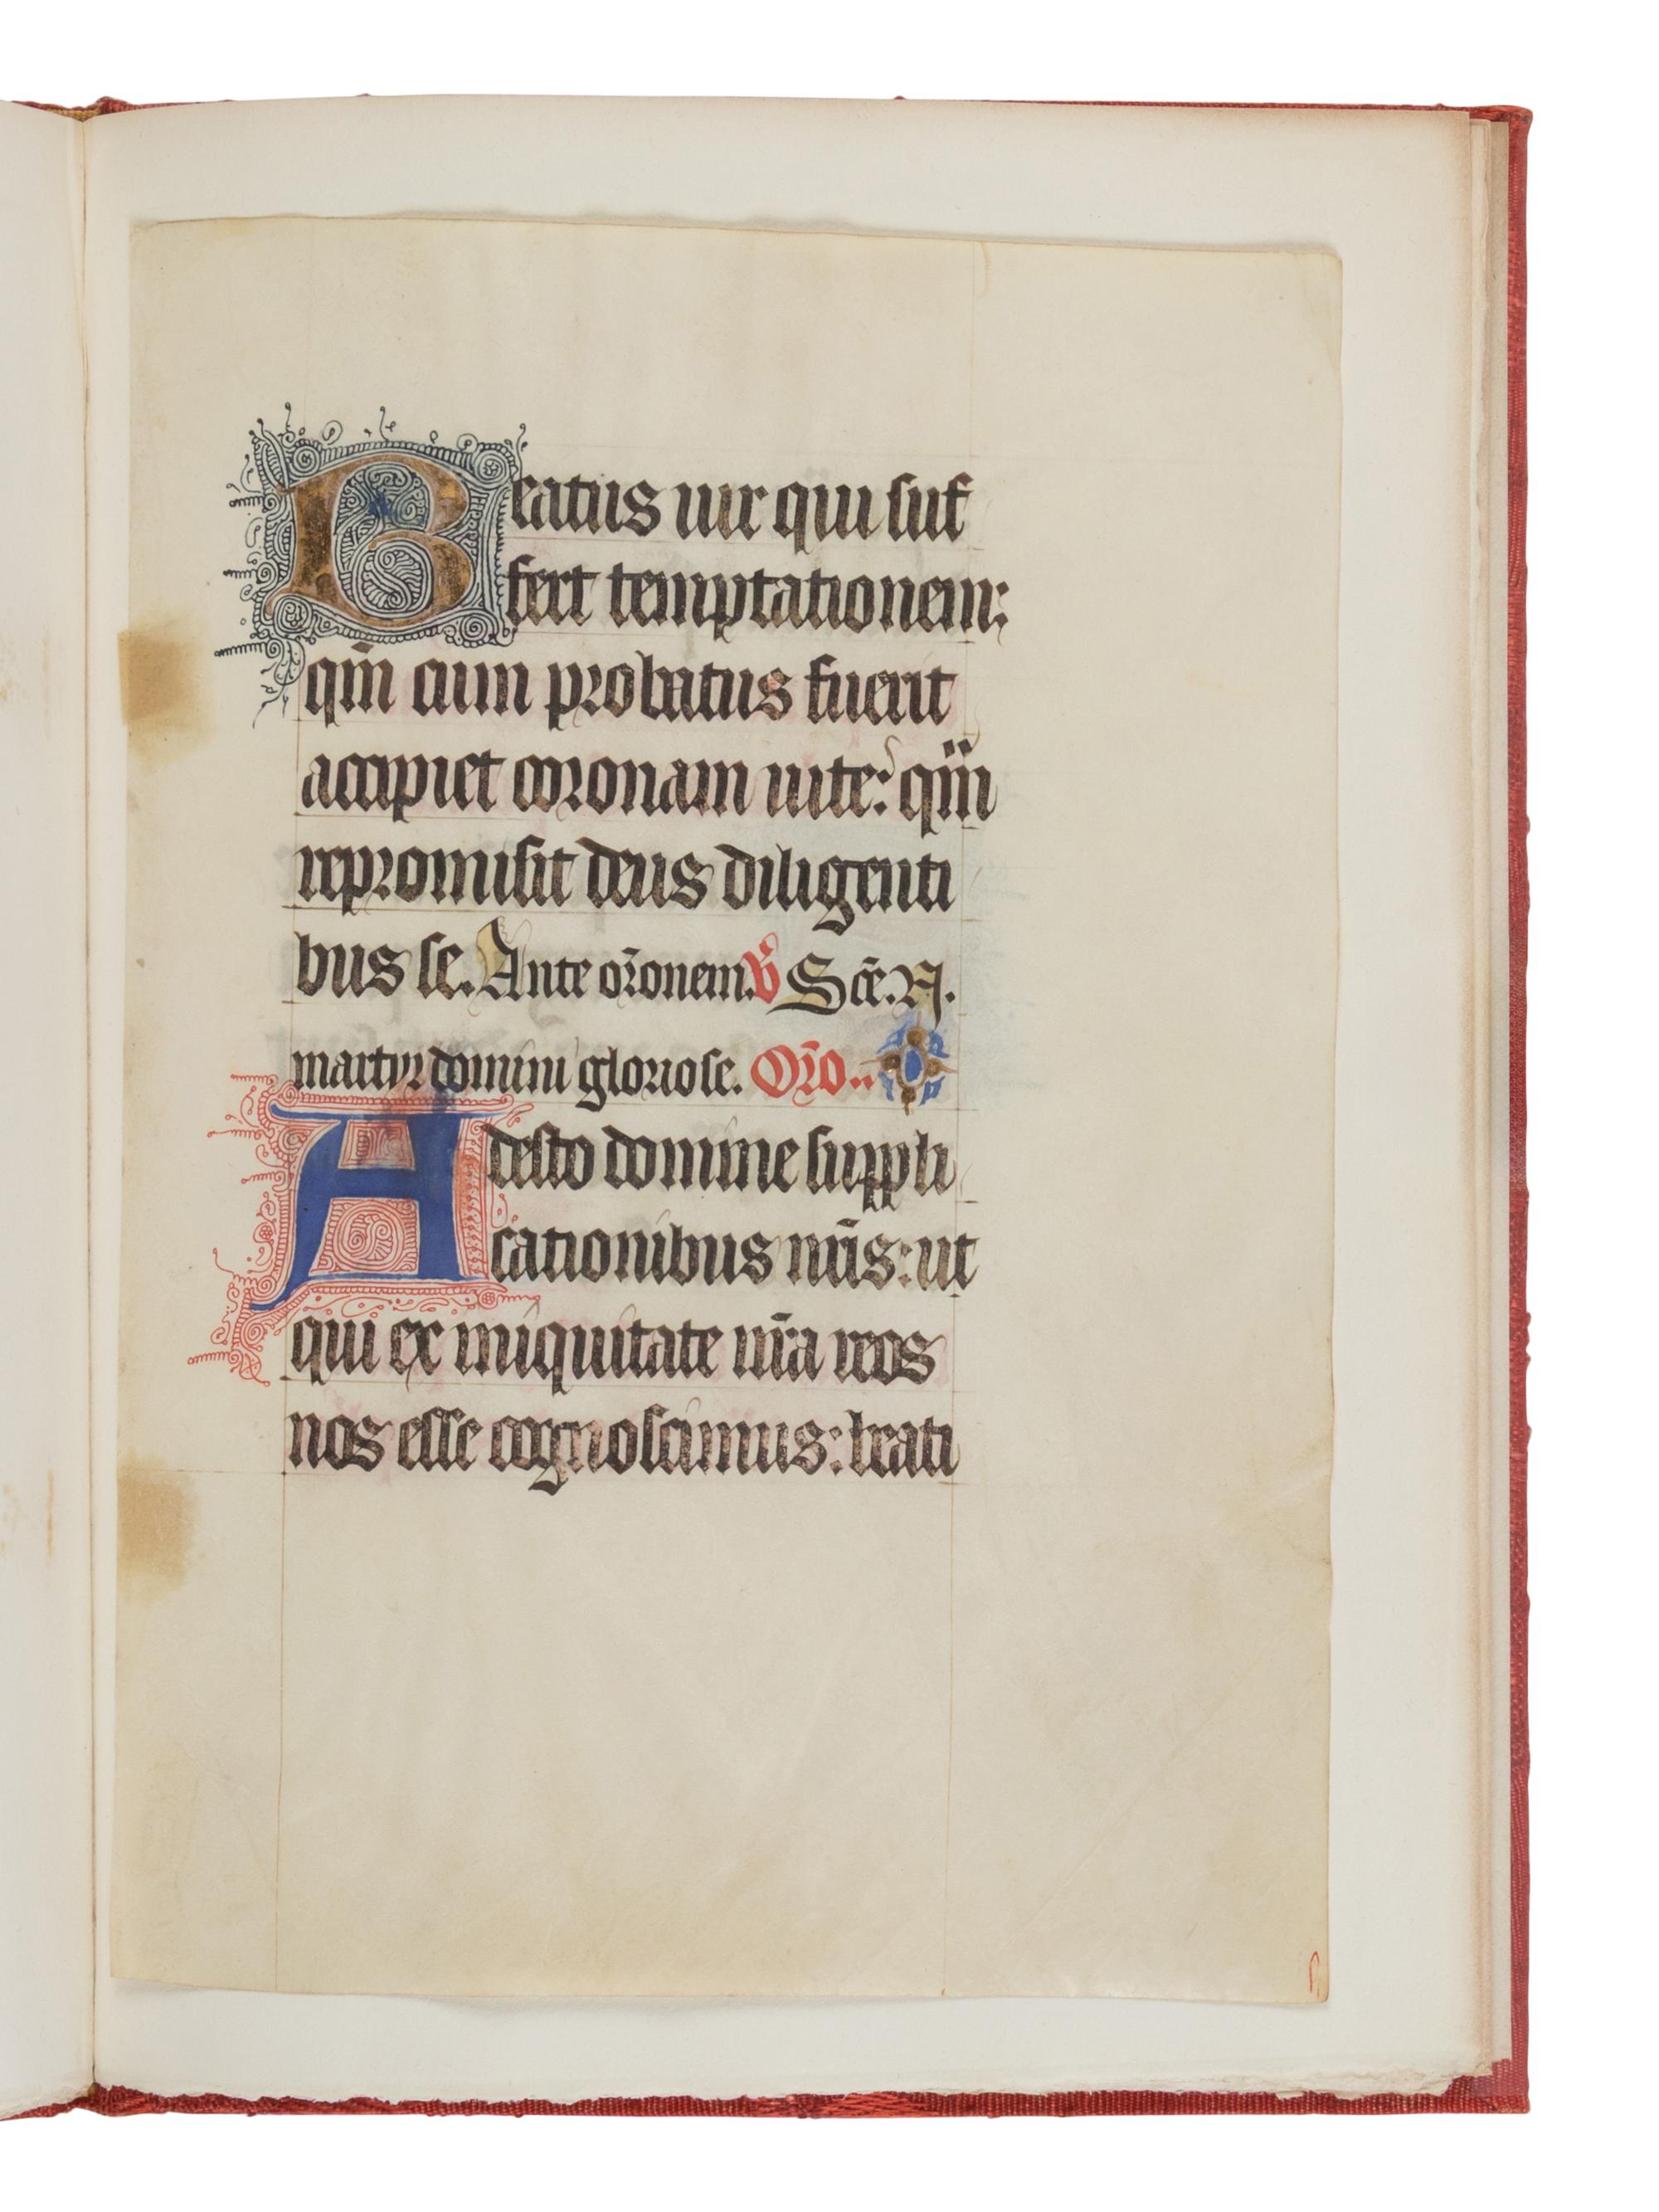 Beatus uir qui suf
fert temptationem:
qm̄ cum probatus fuerit
accipiet coronam uite: qm̄
repromisit deus diligenti
bus se. Ante or̄onem. V̄ Sc̄e. N.
martyr domini gloriose. Or̄o..
Adesto domine suppli
cationibus nr̄is: ut
qui ex iniquitate nr̄a reos
nos esse cognoscimus: beati